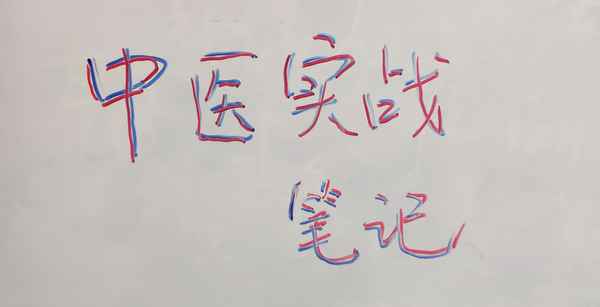 中医实战
笔记